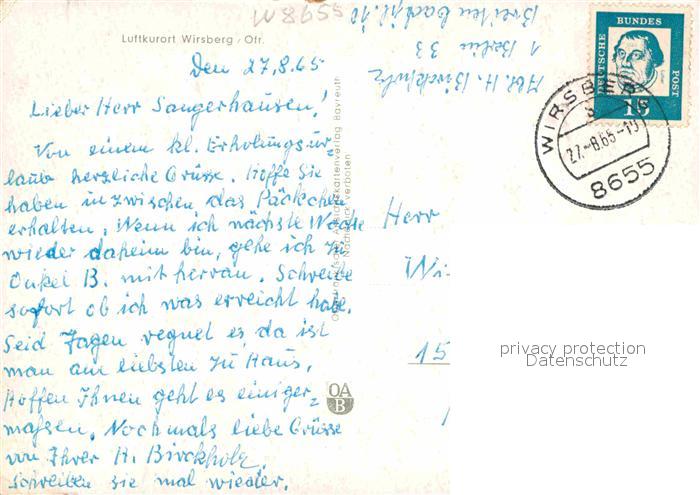 W8655
Luftkurort Wirsberg / Ofr.
Den 27.8.65
Lieber Herr Sangerhausen!
Von einem kl. Erholungsur-
laub herzliche Grüsse. Hoffe Sie
haben inzwischen das Päckchen
erhalten. Wenn ich nächste Woche
wieder daheim bin, gehe ich zu
Onkel B. mit herran. Schreibe
sofort ob ich was erreicht habe.
Seid Tagen regnet es, da ist
man am liebsten zu Haus.
Hoffen Ihnen geht es einiger-
maßen. Nochmals liebe Grüsse
von Ihrer H. Birckholz.
Schreiben sie mal wieder.
Abs. H. Birckholz
1 Berlin 33
Breitenbachpl. 10
Nachdruck verboten
OA
B
DEUTSCHE BUNDESPOST
15
WIRSBERG
27.-8.65-19
8655
Herr
Wi
15
privacy protection
Datenschutz